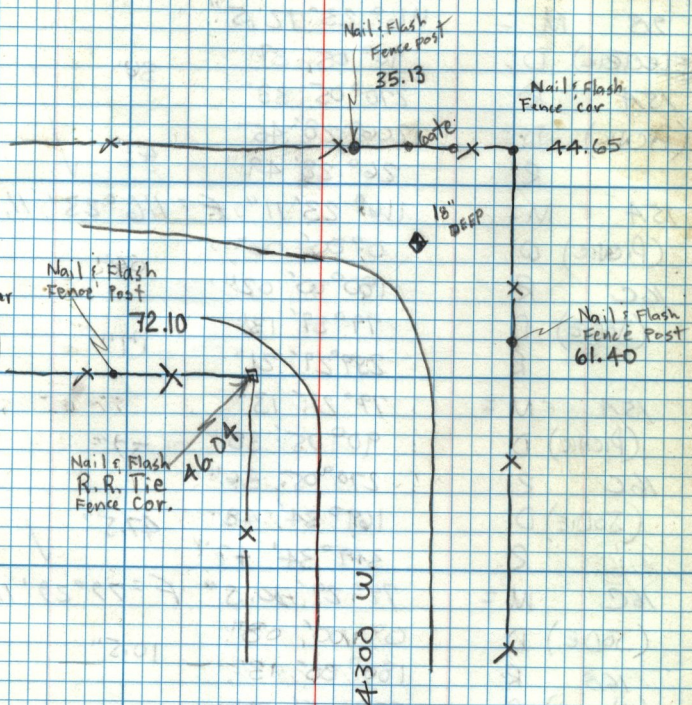 Nail & Flash
Fence Post
35.13
Nail & Flash
Fence cor
Gate
44.65
18"
DEEP
Nail & Flash
Fence Post
72.10
Nail & Flash
Fence Post
61.40
46.04
Nail & Flash
R.R. Tie
Fence Cor.
4300 W.